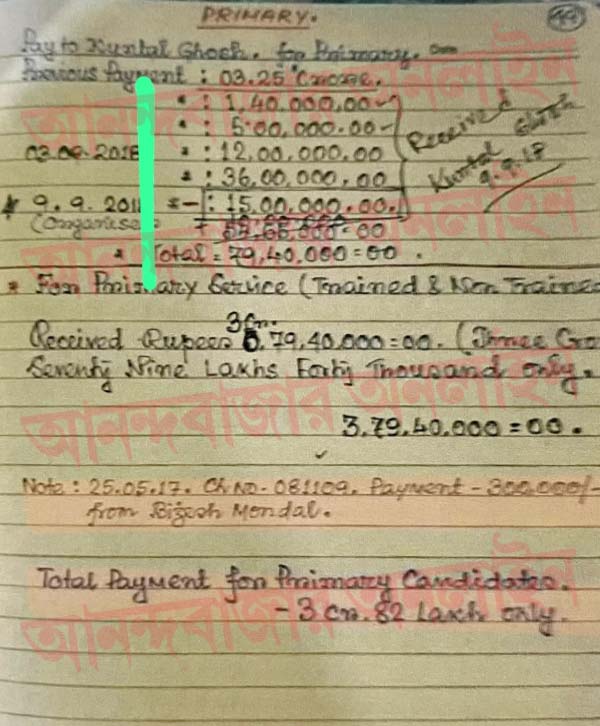 PRIMARY.
Pay to Kuntal Ghosh. for Primary.
Previous Payment : 03.25 Crore.
" : 1,40.000,00
" : 5.00,000.00
03.09.2018 " : 12,00,000.00
" : 36,00,000.00
* 9.9.201 " - : 15.00,000.00.
(Organiser
Received
Kuntal Ghosh
9.9.18
" Total = 79,40.000=00 .
* For Primary Service (Trained & Non Trained
Received Rupees 3Cr. ,79,40,000=00. (Three Cro
Seventy Nine Lakhs Forty Thousand only.
3,79,40,000=00.
Note : 25.05.17. Ch NO- 081109. Payment - 300.000/-
from Bijesh Mondal.
Total Payment for Primary Candidates.
- 3 Cr. 82 Lakh only.
আনন্দবাজার অনলাইন